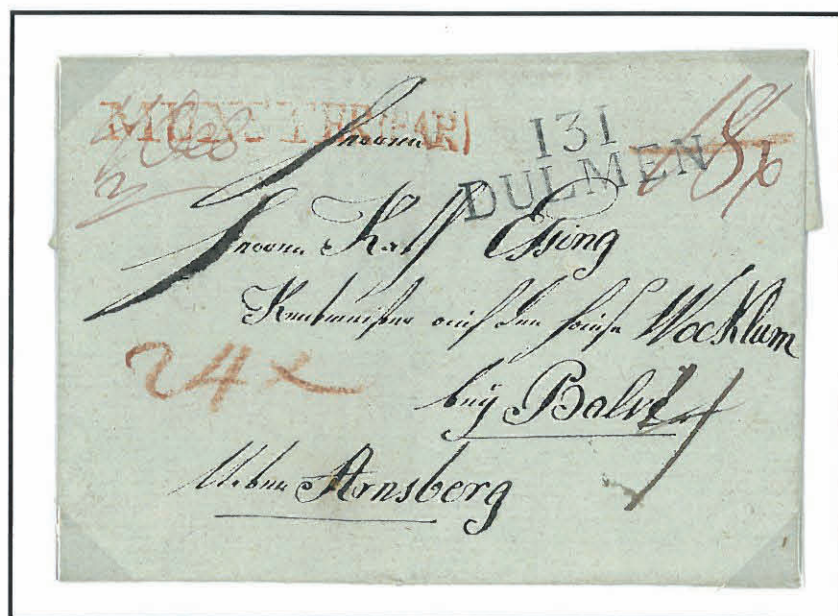 MUNSTER (BAR)
131
DULMEN
Herrn
Herrn Essing
Rentmeister auf dem Hause Wocklum
bey Balve
Ueber Arnsberg
24 x